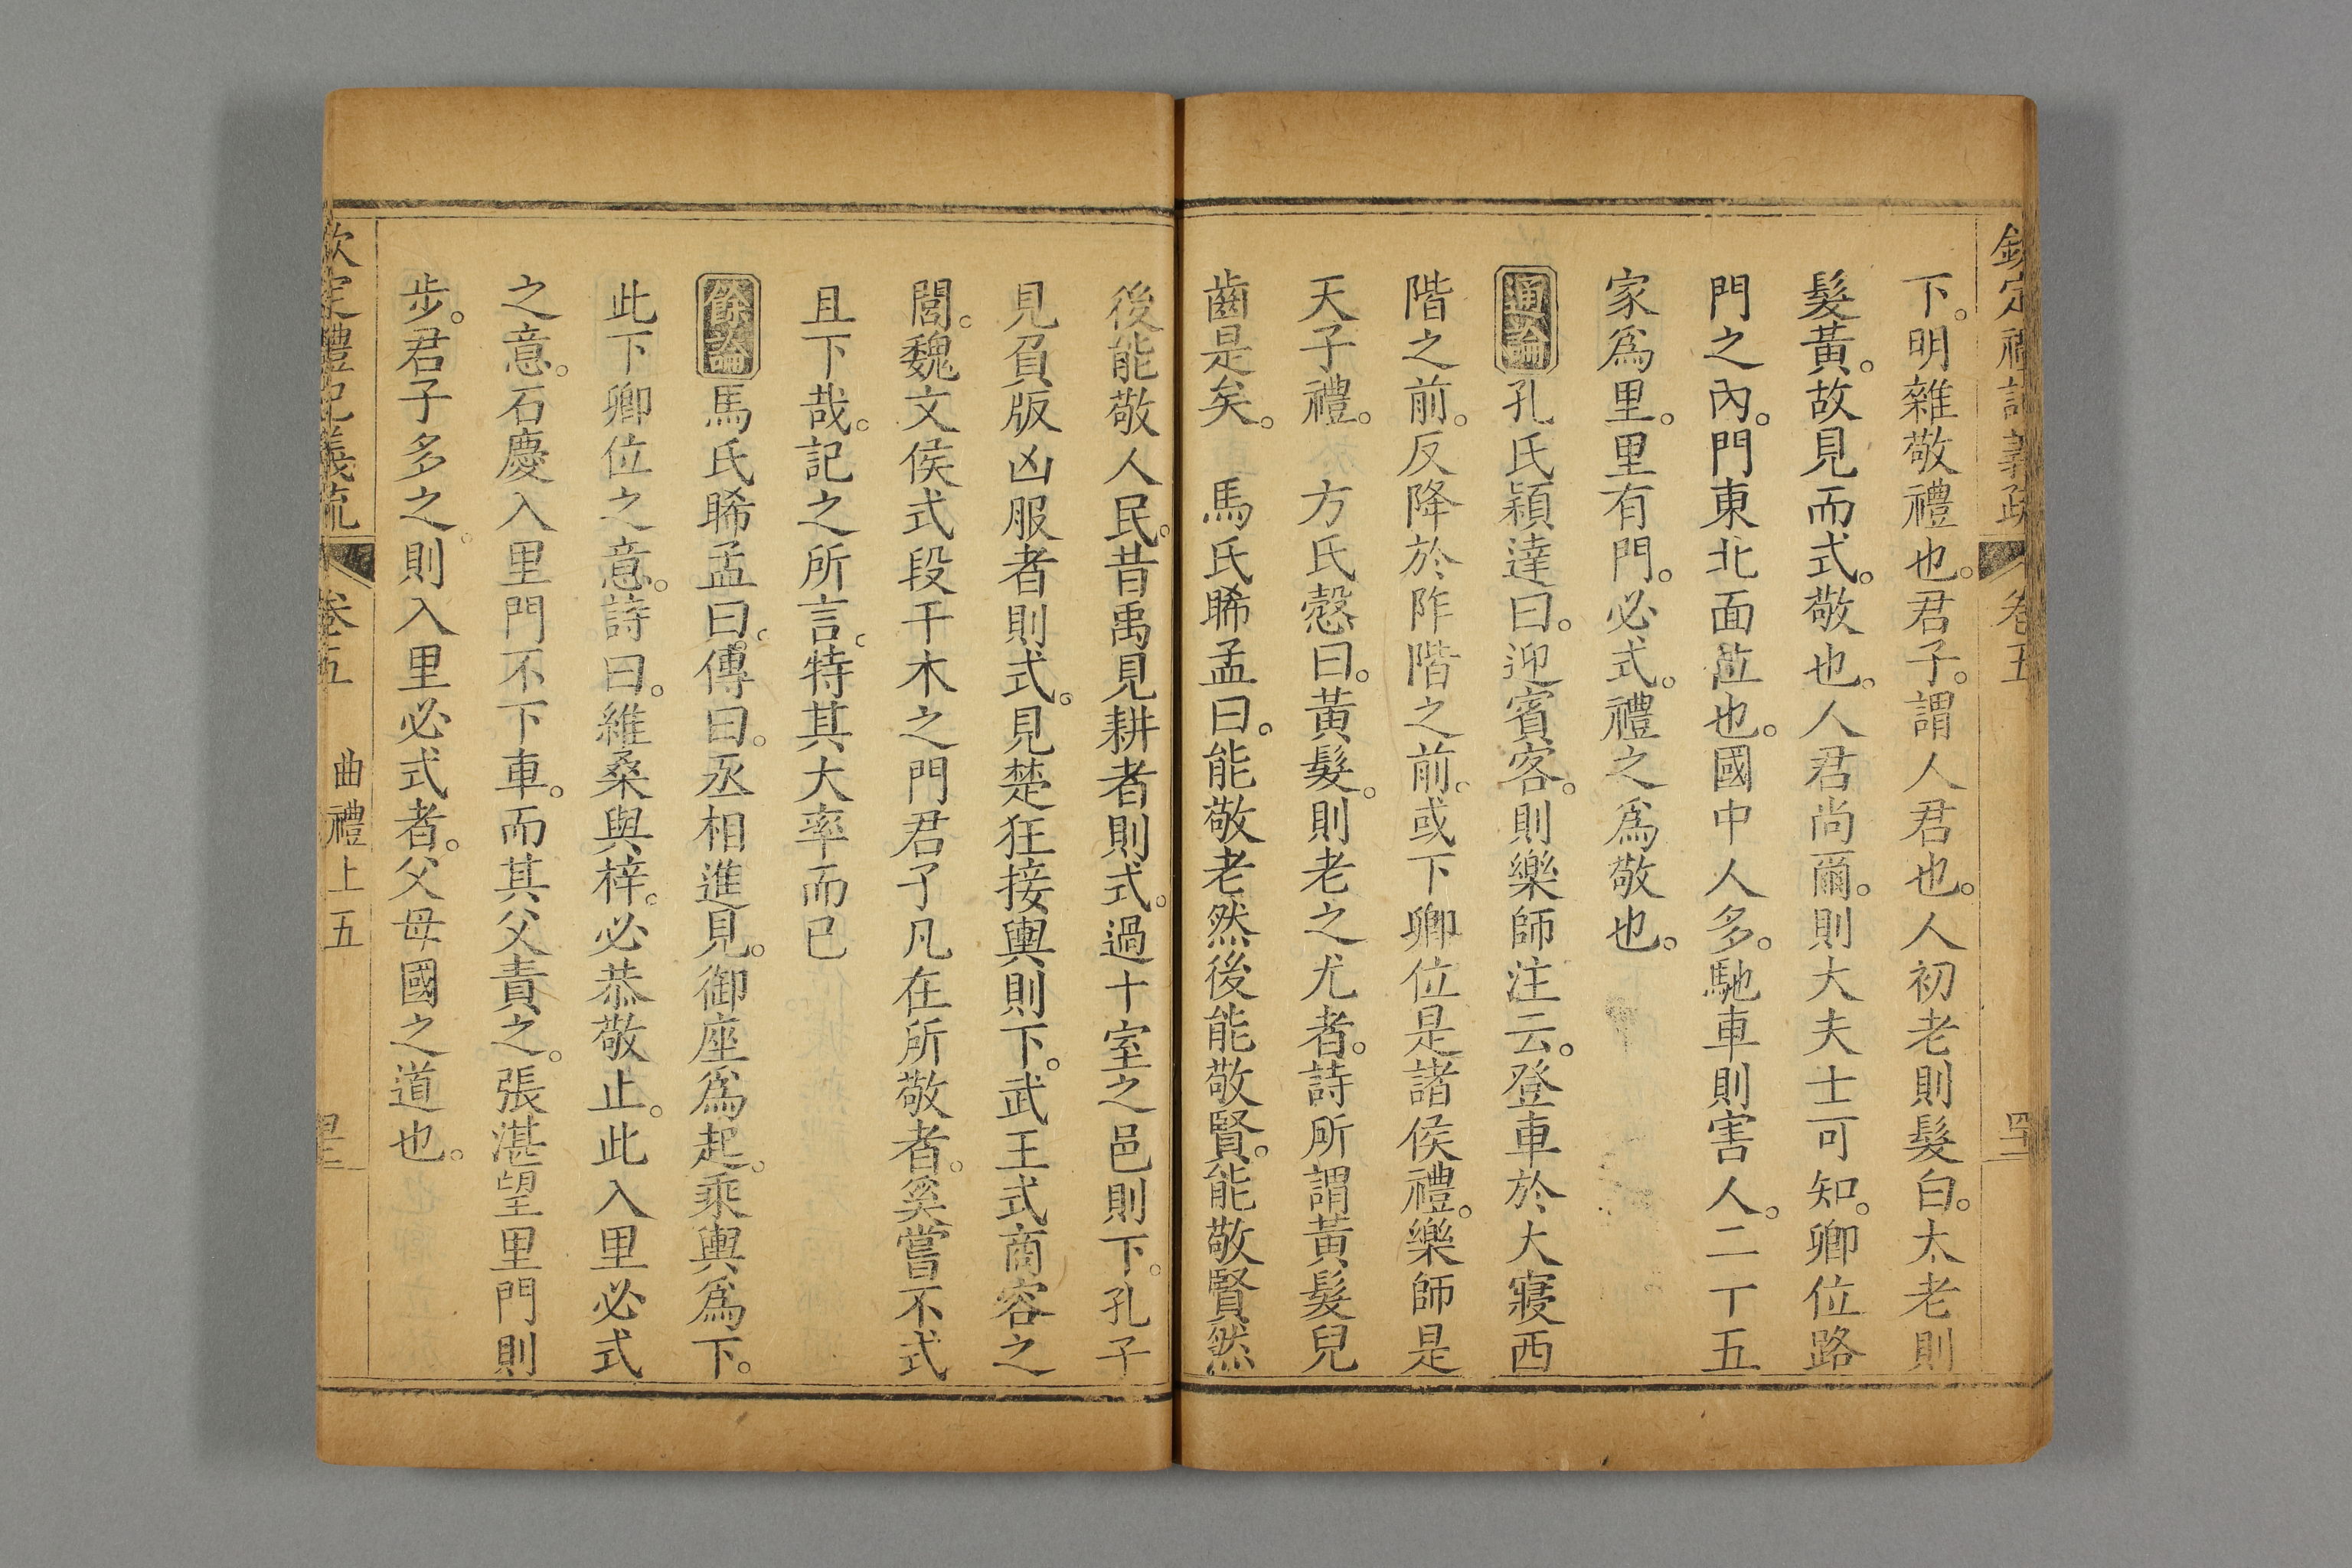 欽定禮記義疏 卷五
下。明雜敬禮也。君子。謂人君也。人初老則髮白。太老則
髮黃。故見而式。敬也。人君尚爾。則大夫士可知。卿位路
門之內。門東北面位也。國中人多。馳車則害人。二十五
家爲里。里有門。必式。禮之爲敬也。
通論孔氏穎達曰。迎賓客。則樂師注云。登車於大寢西
階之前。反降於阼階之前。或下卿位是諸侯禮。樂師是
天子禮。 方氏慤曰。黃髮。則老之尤者。詩所謂黃髮兒
齒是矣。 馬氏晞孟曰。能敬老然後能敬賢。能敬賢然
後能敬人民。昔禹見耕者則式。過十室之邑則下。孔子
見負版凶服者則式。見楚狂接輿則下。武王式商容之
閭。魏文侯式段干木之門君子凡在所敬者。奚嘗不式
且下哉。記之所言。特其大率而已
餘論馬氏晞孟曰。傳曰。丞相進見。御座爲起。乘輿爲下。
此下卿位之意。詩曰。維桑與梓。必恭敬止。此入里必式
之意。石慶入里門不下車。而其父責之。張湛望里門則
步。君子多之。則入里必式者。父母國之道也。
欽定禮記義疏 卷五 曲禮上五